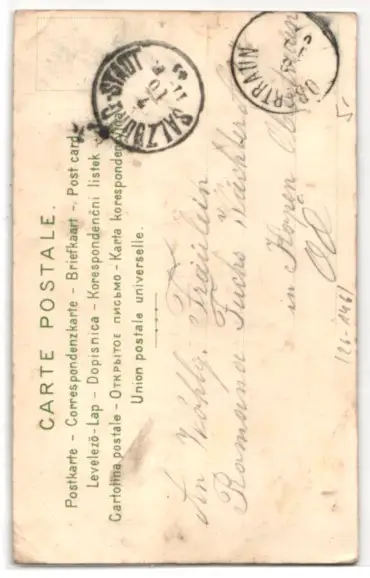 CARTE POSTALE.
Postkarte – Correspondenzkarte – Briefkaart – Post card
Levelező-Lap – Dopisnica – Korespondenční listek
Cartolina postale – Открытое письмо – Karta korespondencyjna
Union postale universelle.
SALZBURG-STADT
An Wohlg. Fräulein
Romana Fuchs
in
OÖ
126-1461
5.